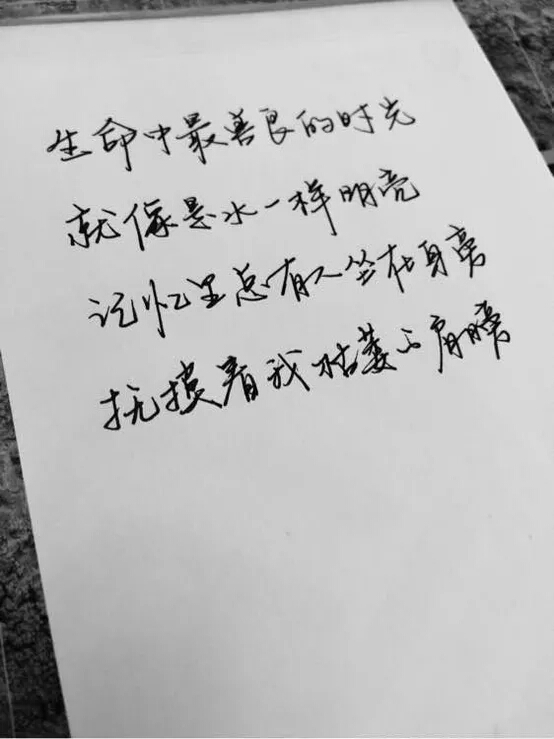 生命中最善良的时光
就像是水一样明亮
记忆里总有人坐在身旁
抚摸着我枯萎的肩膀